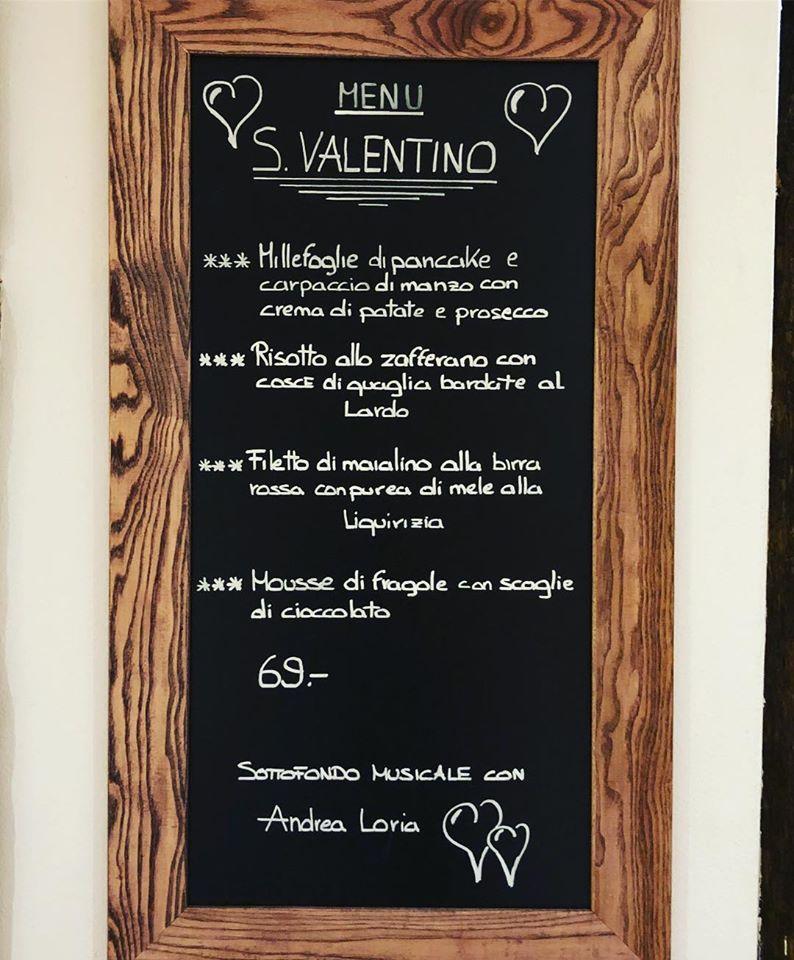 MENU
S. VALENTINO
*** Millefoglie di pancake e
carpaccio di manzo con
crema di patate e prosecco
*** Risotto allo zafferano con
cosce di quaglia bardate al
Lardo
*** Filetto di maialino alla birra
rossa con purea di mele alla
Liquirizia
*** Mousse di fragole con scaglie
di cioccolato
69.-
SOTTOFONDO MUSICALE CON
Andrea Loria